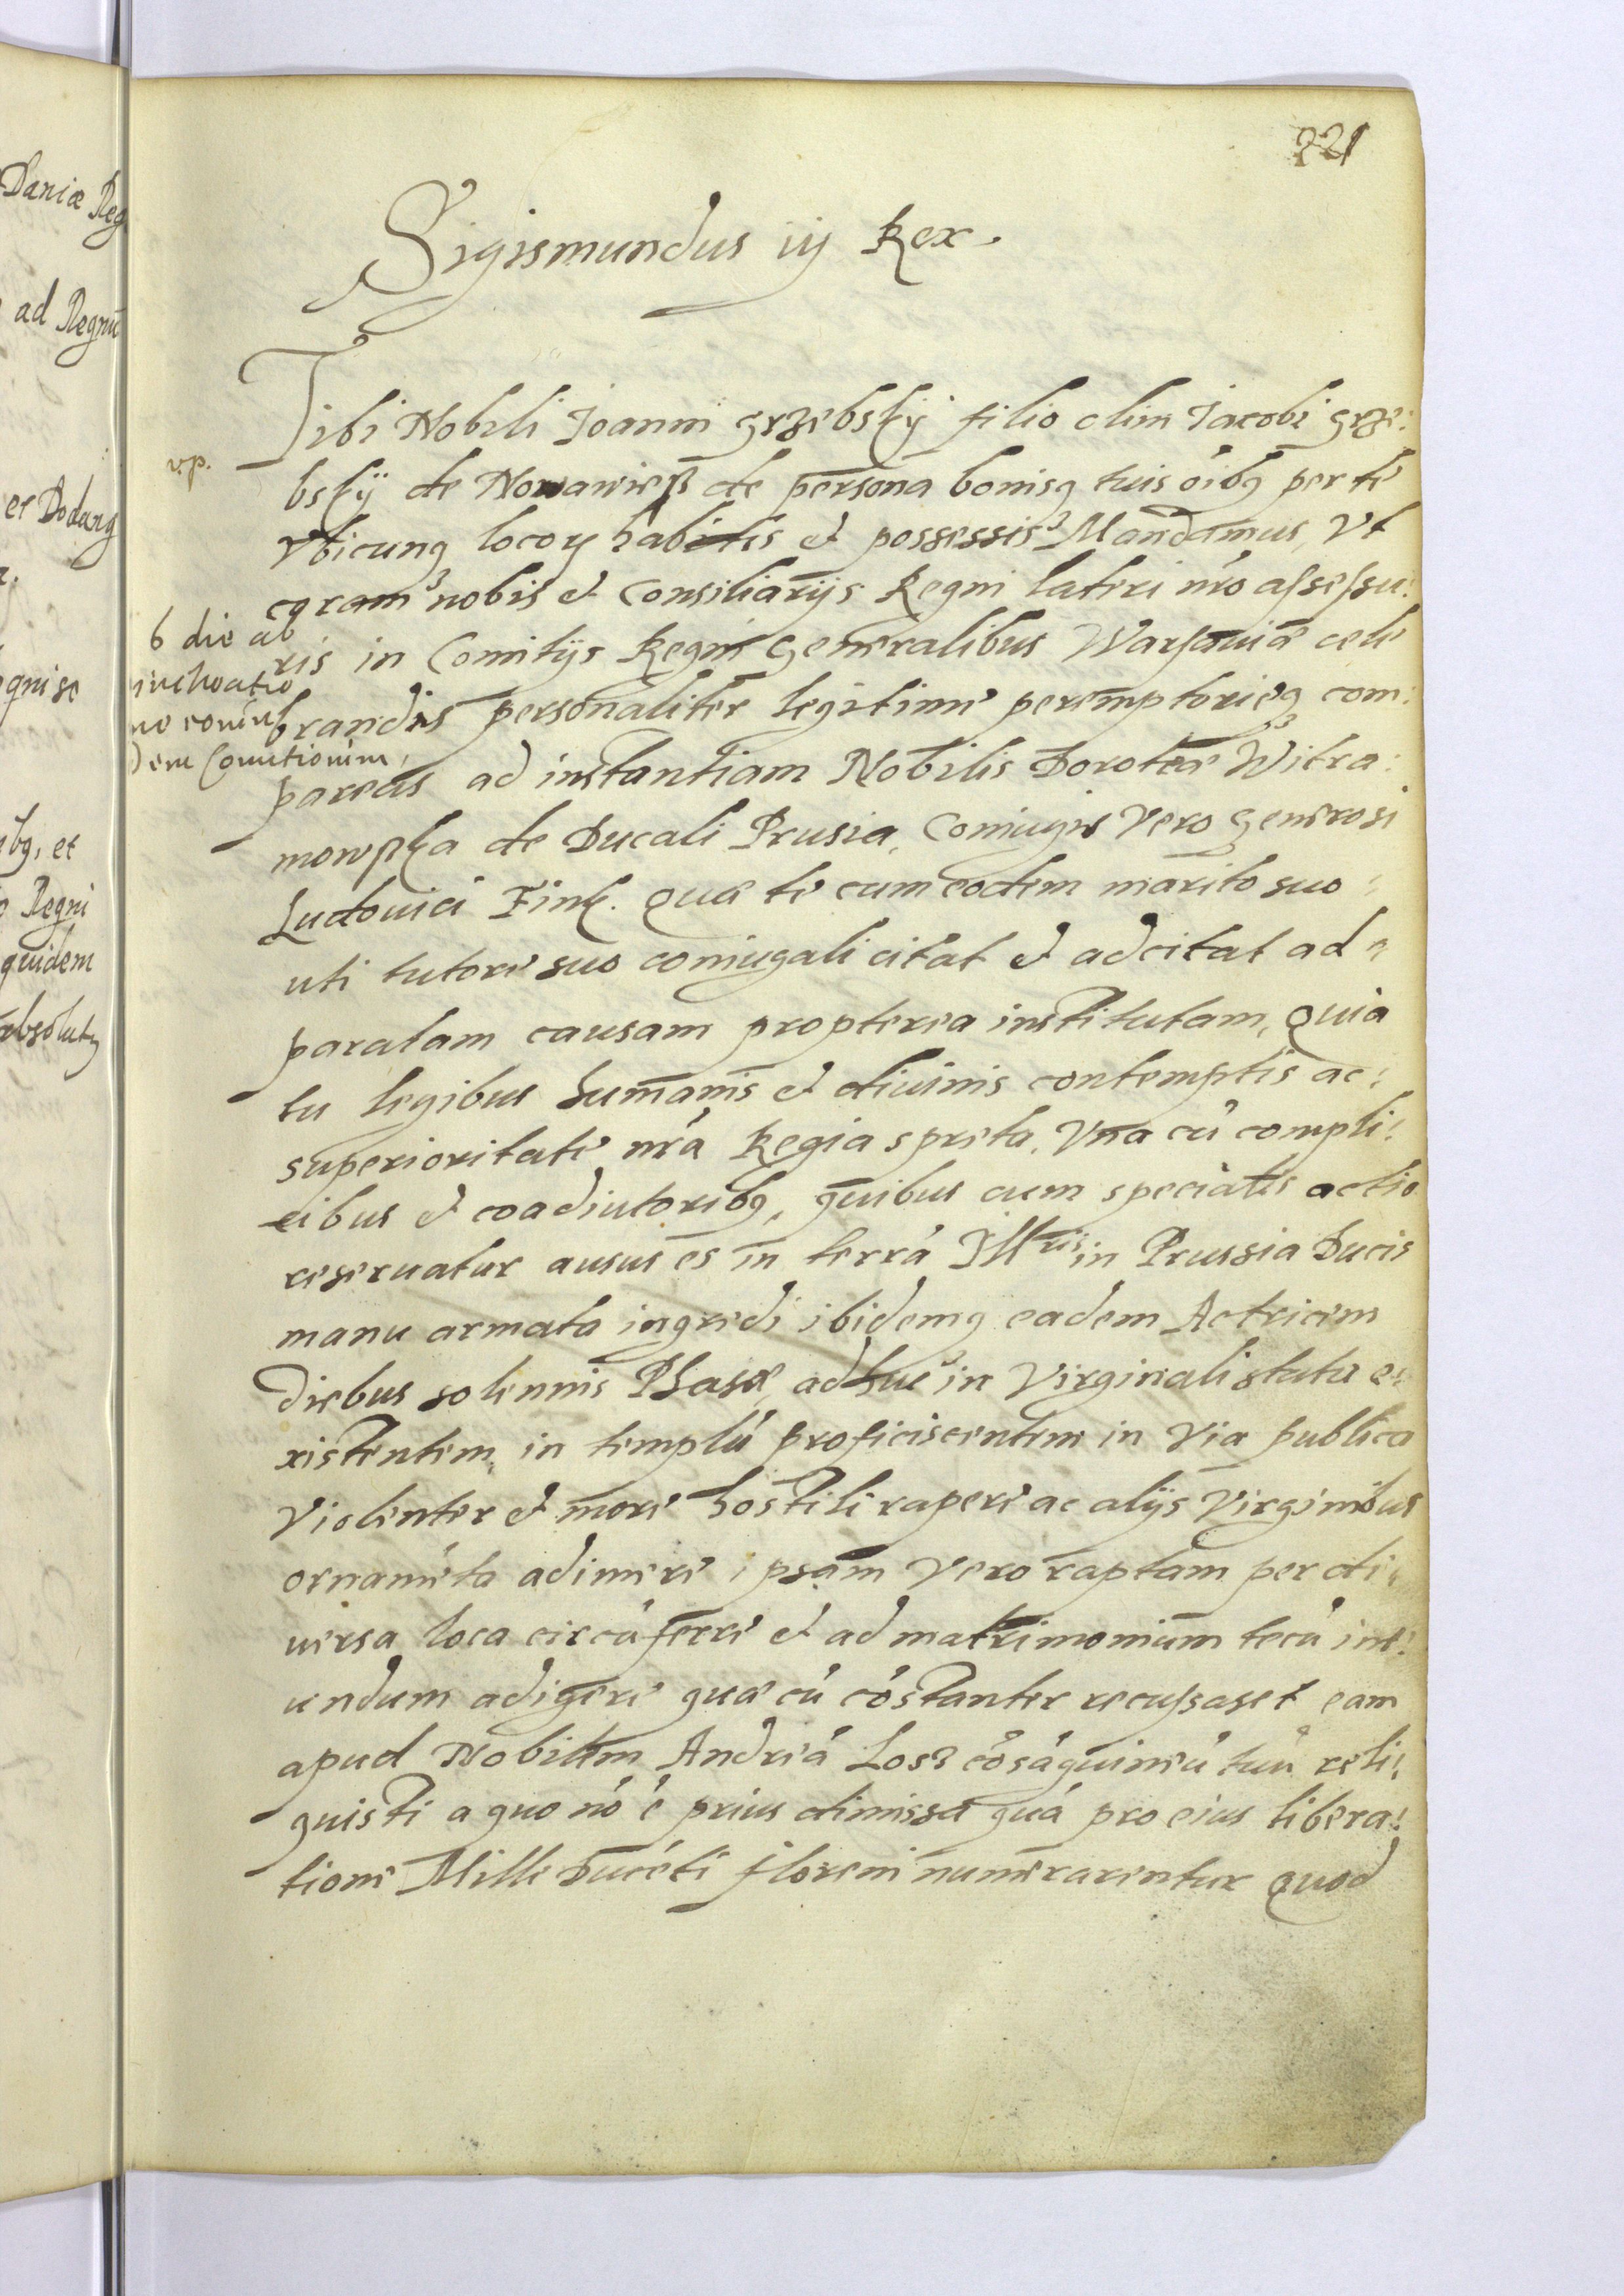 221
Sigismundus iij Rex.
Tibi Nobili Joanni Grzebskÿ filio olim Jacobi Grze:
v.p.
bskÿ de Nowawiess de persona bonisq tuis oibq per te
Vbicunq locorum habitis et possessis Mandamus, Vt
coram nobis et Consiliarijs Regni lateri nro assessu:
ris in Comitijs Regni Generalibus Warsauiæ cele
brandis personaliter legitime peremptorieq com:
6 die ab
inchoatio
ne
dem Comitiorum,
pareas ad instantiam Nobilis Doroteæ Witra:
mowska de Ducali Prusia, Coniugis Vero Generosi
Ludouici Fink. Quæ te cum eodem marito suo
uti tutore suo coniugali citat et adcitat ad
paratam causam propterea institutam, Quia
tu legibus humanis et diuinis contemptis ac:
superioritate nra Regia spreta, Vna cu compli:
cibus et coadiutoribq, quibus cum specialis actio
reseruatur ausus es in terra Illris in Prussia Ducis
manu armata ingredi ibidemq eadem Actricem
diebus solennis Phasæ, adhuc in Virginali statu e:
xistentem, in templu proficiscentem in Via publica
Violenter et more hostili rapere ac alijs Virginibus
ornameta adimere ipsam Vero raptam per di:
uersa loca circuferre et ad matrimonium tecu ine:
undum adigere quæ cu costanter recussaset eam
apud Nobilem Andrea Loss cosaguineu tuu reli:
quisti a quo no e prius dimissa qua pro eius libera:
tione Mille Duceti floreni numerarentur Quod
Daniæ Reg
ad Regnu
et
gni se
ibq, et
Regni
quidem
absolut